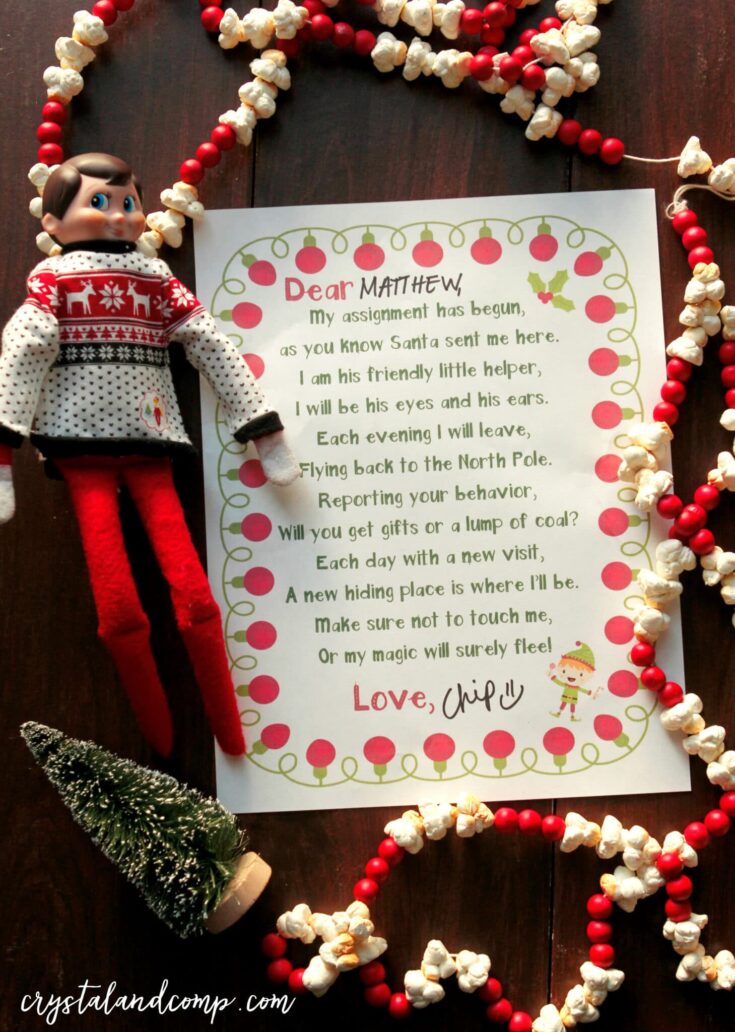 Dear MATTHEW,
My assignment has begun,
as you know Santa sent me here.
I am his friendly little helper,
I will be his eyes and his ears.
Each evening I will leave,
Flying back to the North Pole.
Reporting your behavior,
Will you get gifts or a lump of coal?
Each day with a new visit,
A new hiding place is where I'll be.
Make sure not to touch me,
Or my magic will surely flee!
Love, Chip
crystalandcomp.com